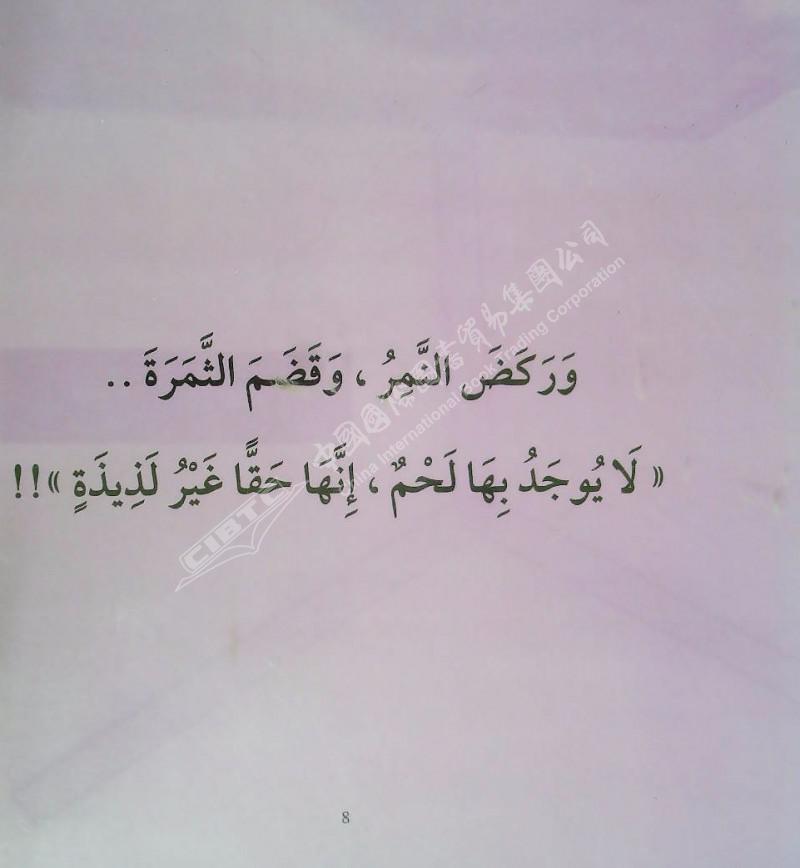 وَرَكَضَ النَّمِرُ ، وَقَضَمَ الثَّمَرَةَ ..
« لَا يُوجَدُ بِهَا لَحْمٌ ، إِنَّهَا حَقًّا غَيْرُ لَذِيذَةٍ »!!
中國國際圖書貿易集團公司
China International Book Trading Corporation
CIBTC
8